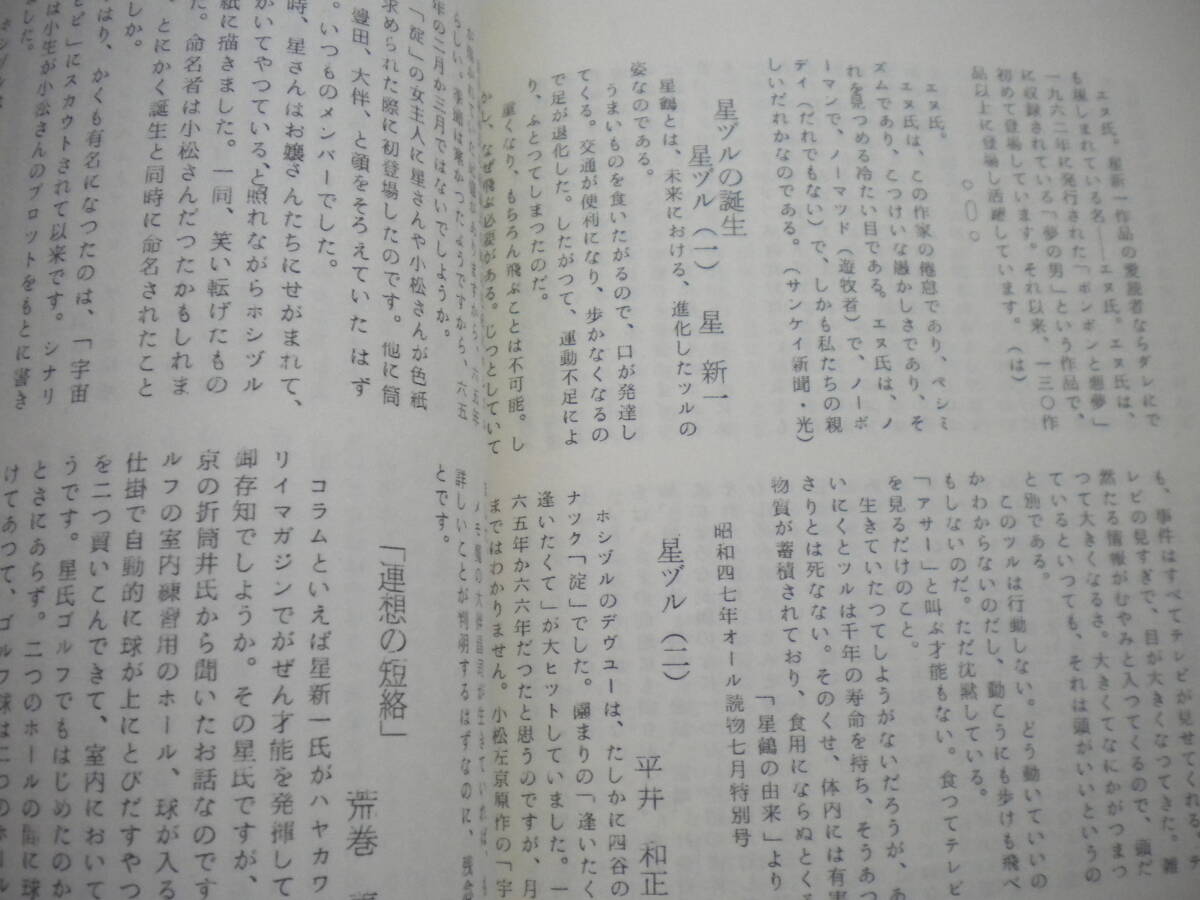 エヌ氏。星新一作品の愛読者ならダレにで
も親しまれている名――エヌ氏。エヌ氏は、
一九六二年に発行された「ボンボンと悪夢」
に収録されている「夢の男」という作品で、
初めて登場しています。それ以来、一三〇作
品以上に登場し活躍しています。（は）
エヌ氏。
エヌ氏は、この作家の倦怠であり、ペシミ
ズムであり、こっけいな愚かしさであり、そ
れを見つめる冷たい目である。エヌ氏は、ノ
ーマンで、ノーマッド（遊牧者）で、ノーボ
ディ（だれでもない）で、しかも私たちの親
しいだれかなのである。（サンケイ新聞・光）
星ヅルの誕生
星ヅル（一）　星　新一
星鶴とは、未来における、進化したツルの
姿なのである。
うまいものを食いたがるので、口が発達し
てくる。交通が便利になり、歩かなくなるの
で足が退化した。したがつて、運動不足によ
り、ふとつてしまつたのだ。
重くなり、もちろん飛ぶことは不可能。し
かし、なぜ飛ぶ必要がある。じつとしていて
も、事件はすべてテレビが見せてくれる。
レビの見すぎで、目が大きくなつてきた。雑
然たる情報がむやみと入つてくるので、頭だ
つて大きくなるさ。大きくてなにかがつまつ
ているといつても、それは頭がいいというの
と別である。
このツルは行動しない。どう動いていいの
かわからないのだし、動こうにも歩けも飛べ
もしないのだ。ただ沈黙している。
「アサー」と叫ぶ才能もない。食つてテレビ
を見るだけのこと。
生きていたつてしようがないだろうが、あ
いにくとツルは千年の寿命を持ち、そうあつ
さりとは死なない。そのくせ、体内には有害
物質が蓄積されており、食用にならぬとくる
「星鶴の由来」より
昭和四七年オール読物七月特別号
星ヅル（二）
平井　和正
ホシヅルのデヴユーは、たしかに四谷の
ナツク「淀」でした。園まりの「逢いたく
逢いたくて」が大ヒツトしていました。一
六五年か六六年だつたと思うのですが、月
まではわかりません。小松左京原作の「宇
らしい。
年の二月か三月ではないでしようか。
「淀」の女主人に星さんや小松さんが色紙
求められた際に初登場したのです。他に筒
豊田、大伴、と頭をそろえていたはず
。いつものメンバーでした。
時、星さんはお嬢さんたちにせがまれて、
かいてやつている、と照れながらホシヅル
紙に描きました。一同、笑い転げたもの
た。命名者は小松さんだつたかもしれま
、とにかく誕生と同時に命名されたこと
しか。
はり、かくも有名になつたのは、「宇宙
ピピ」にスカウトされて以来です。シナリ
は小生が小松さんのプロツトをもとに書き
した。
詳しいことが判明するはずなのに、残念
とです。
「連想の短絡」
荒巻
コラムといえば星新一氏がハヤカワ
リイマガジンでがぜん才能を発揮して
御存知でしようか。その星氏ですが、
京の折筒井氏から聞いたお話なのです
ルフの室内練習用のホール、球が入る
仕掛で自動的に球が上にとびだすやつ
を二つ買いこんできて、室内において
うです。星氏ゴルフでもはじめたのか
とさにあらず。二つのホールの間に球
けてあつて、ゴルフ球は二つのホール